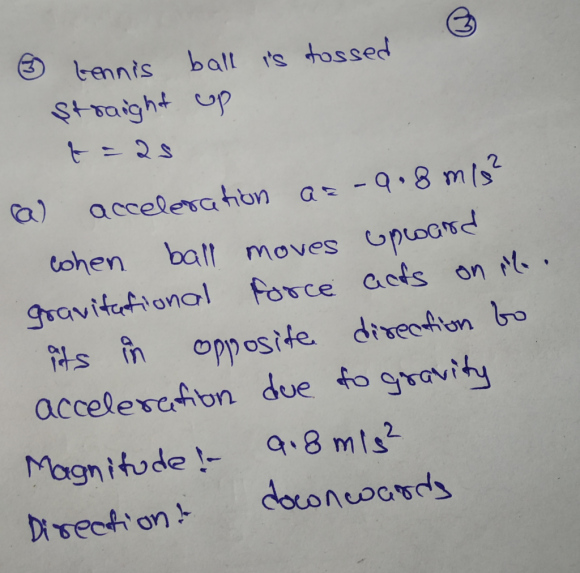 ③
③ tennis ball is tossed
straight up
t = 2s
(a) acceleration a = -9.8 m/s²
when ball moves upward
gravitational force acts on it.
its in opposite direction to
acceleration due to gravity
Magnitude :- 9.8 m/s²
Direction :- downwards